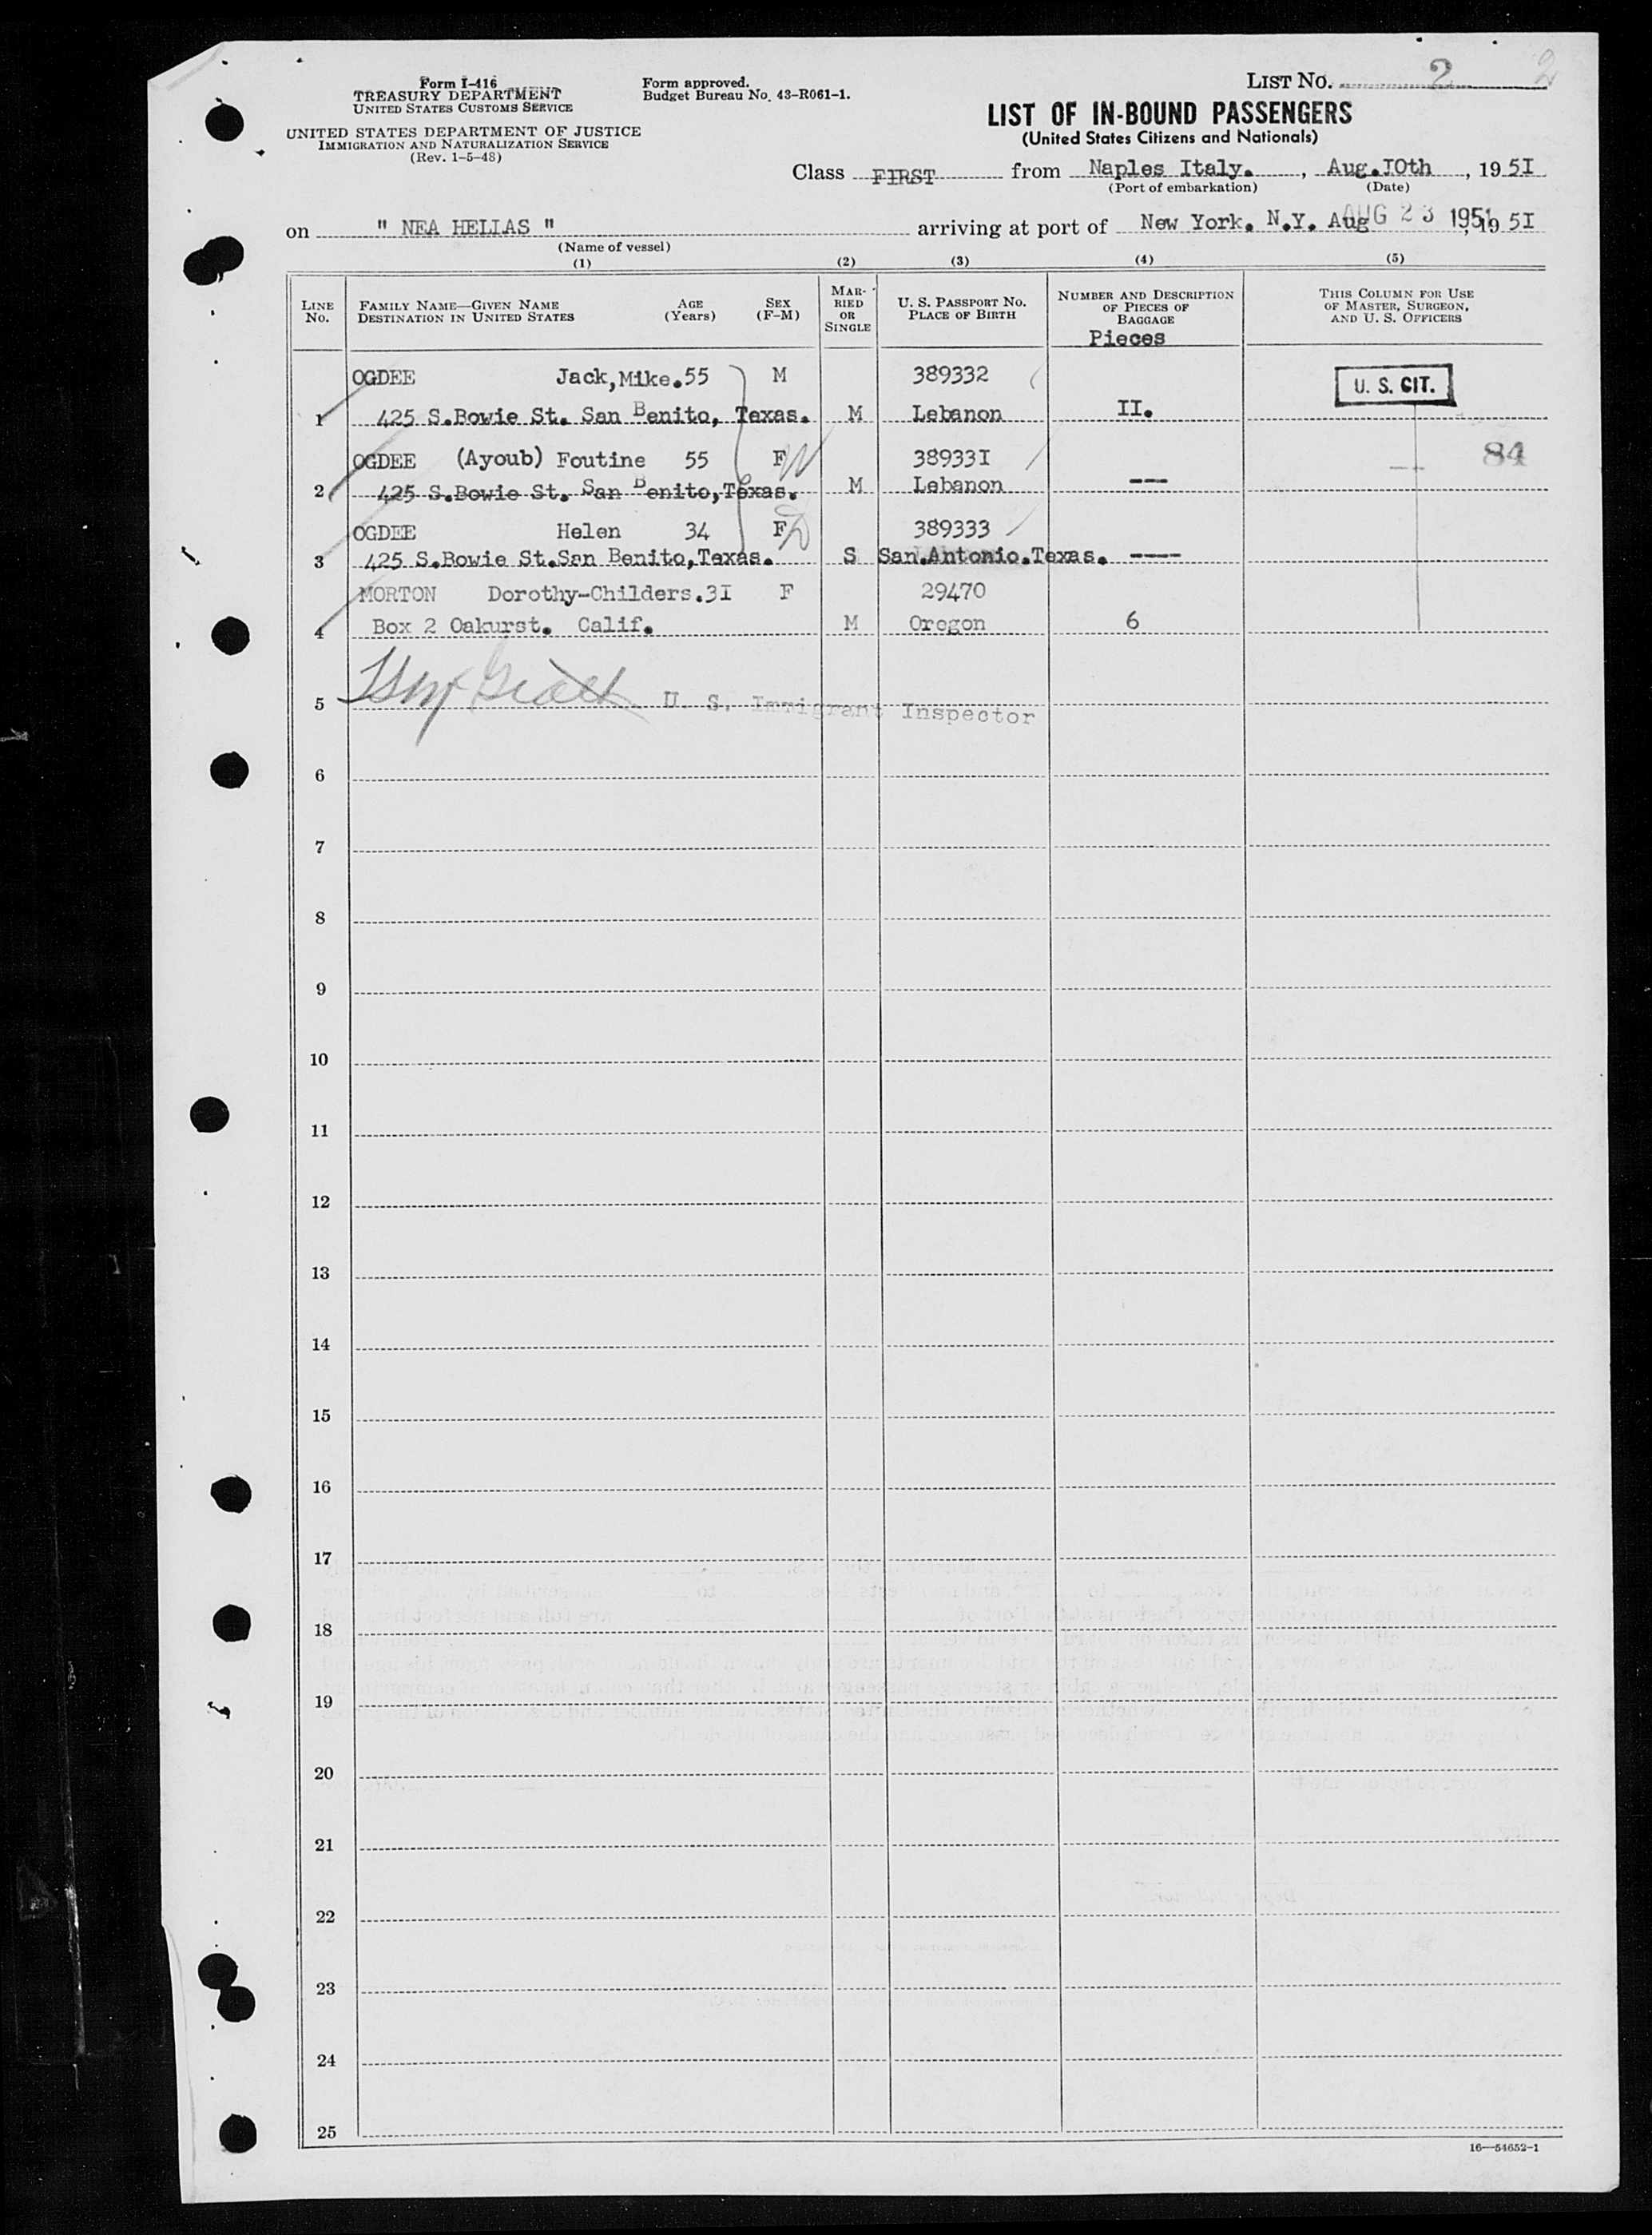 LIST NO. 2 2
Form I-416
TREASURY DEPARTMENT
UNITED STATES CUSTOMS SERVICE
UNITED STATES DEPARTMENT OF JUSTICE
IMMIGRATION AND NATURALIZATION SERVICE
(Rev. 1-5-48)
Form approved.
Budget Bureau No. 43-R061-1.
LIST OF IN-BOUND PASSENGERS
(United States Citizens and Nationals)
Class FIRST from Naples Italy. , Aug.IOth , 195I
(Port of embarkation) (Date)
on " NEA HELLAS " arriving at port of New York. N.Y. Aug AUG 23 1951 , 195I
(Name of vessel)
(1) (2) (3) (4) (5)
LINE NO.
FAMILY NAME—GIVEN NAME
DESTINATION IN UNITED STATES
AGE
(Years)
SEX
(F-M)
MARRIED
OR
SINGLE
U. S. PASSPORT NO.
PLACE OF BIRTH
NUMBER AND DESCRIPTION
OF PIECES OF
BAGGAGE
Pieces
THIS COLUMN FOR USE
OF MASTER, SURGEON,
AND U. S. OFFICERS
OGDEE Jack,Mike.55 M 389332 U. S. CIT.
1 425 S.Bowie St. San Benito, Texas. M Lebanon II.
OGDEE (Ayoub) Foutine 55 F 38933I 84
2 425 S.Bowie St. San Benito,Texas. M Lebanon ---
OGDEE Helen 34 F 389333
3 425 S.Bowie St.San Benito,Texas. S San.Antonio.Texas. ----
MORTON Dorothy-Childers.3I F 29470
4 Box 2 Oakurst. Calif. M Oregon 6
5 U. S. Immigrant Inspector
6
7
8
9
10
11
12
13
14
15
16
17
18
19
20
21
22
23
24
25
16—54652-1